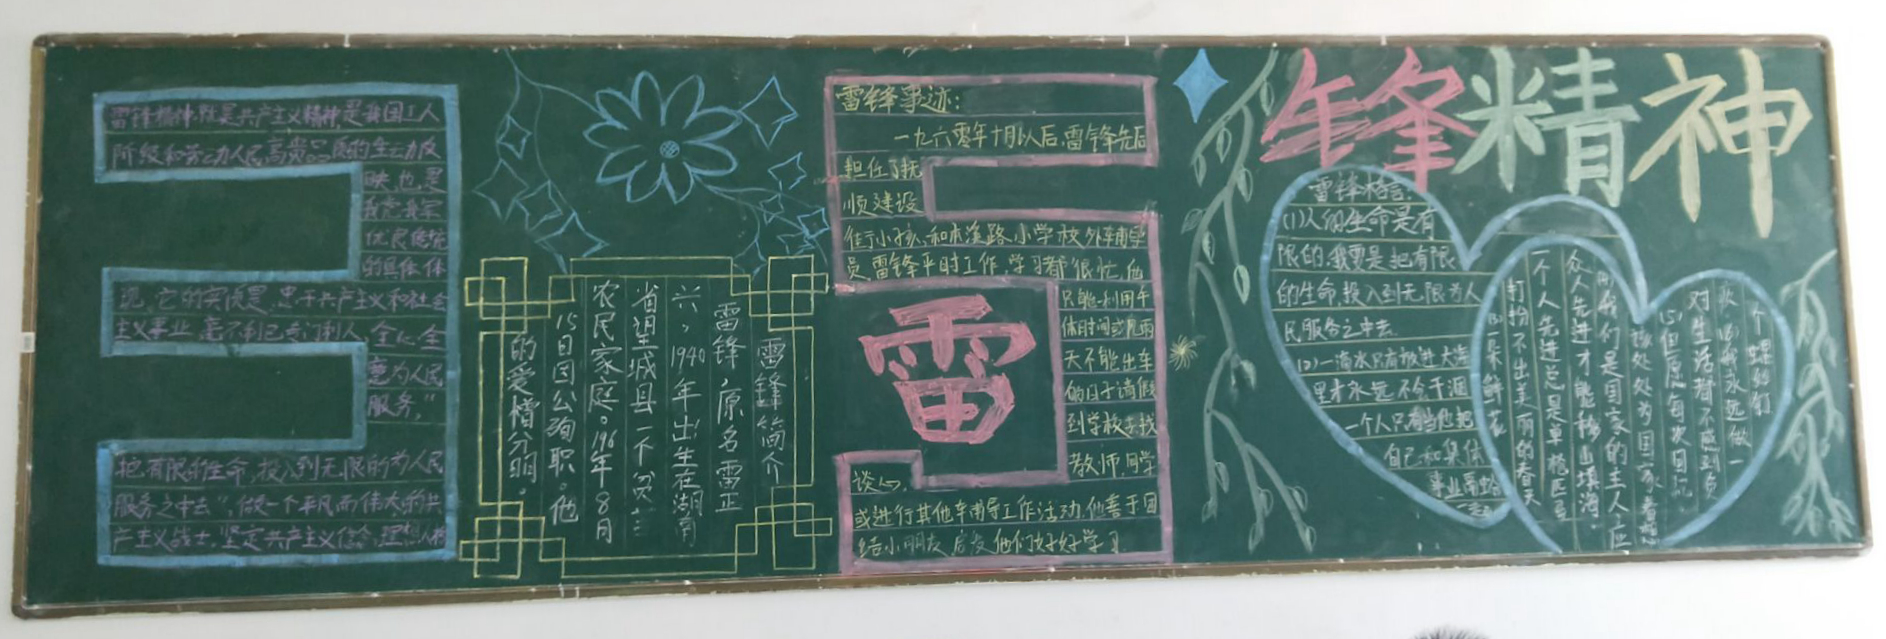 雷锋精神就是共产主义精神,是我国工人
阶级和劳动人民高贵品质的生动反
映,也是
我党我军
优良传统
的具体体
现,它的实质是,忠于共产主义和社会
主义事业,毫不利己专门利人,全心全
意为人民
服务,"
把有限的生命,投入到无限的为人民
服务之中去",做一个平凡而伟大的共
产主义战士,坚定共产主义信念
雷锋简介
雷锋,原名雷正
兴,1940年出生在湖南
省望城县一个贫
农民家庭。196年8月
15日因公殉职。他
的爱憎分明。
雷锋事迹:
一九六零年十月以后,雷锋先后
担任了抚
顺建设
街小孩、和本溪路小学校外辅导
员,雷锋平时工作,学习都很忙,他
只能利用午
休时间或风雨
天不能出车
的日子请假
到学校去找
教师,同学
谈心,
或进行其他车辅导工作活动,他善于团
结小朋友启发他们好好学习
雷
锋精神
雷锋格言:
(1)人的生命是有
限的,我要是把有限
的生命,投入到无限为人
民服务之中去.
(2)一滴水只有放进大海
里才永远不会干涸
一个人只有当他把
自己和集体
事业融合
一起
(3)一朵鲜花
打扮不出美丽的春天
一个人先进总是单枪匹马
众人先进才能移山填海。
我们是国家的主人应
该处处为国家着想
(5)但愿每次回忆
对生活都不感到负
疚(6)我永远做一
个螺丝钉